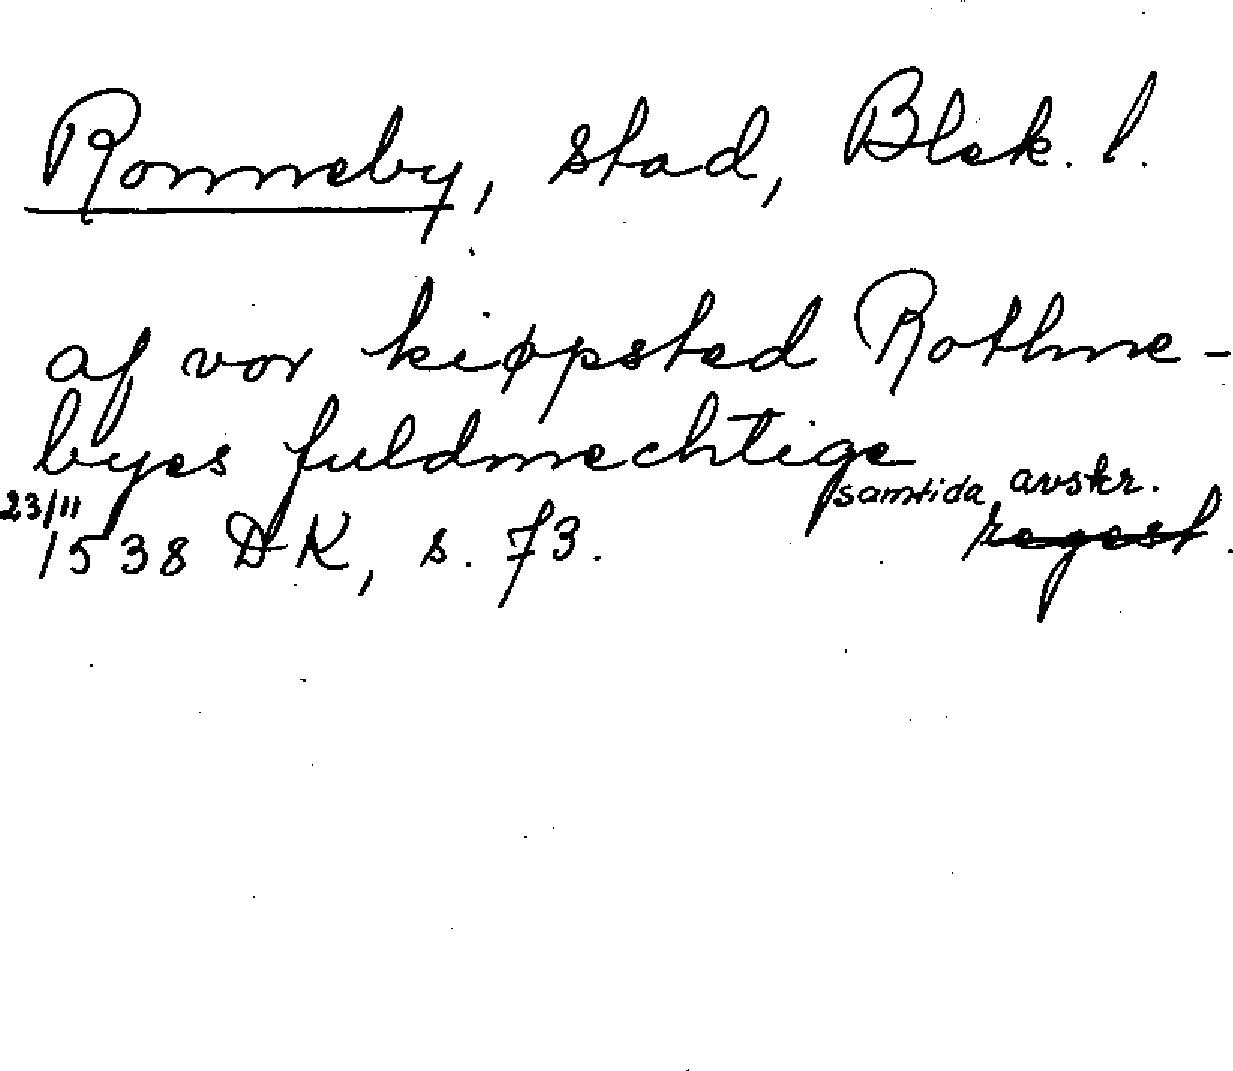 Ronneby, stad, Blek. l.
af vor kiøpsted Rothne-
byes fuldmechtige
samtida avskr.
23/11
1538 DK, s. 73. regest.